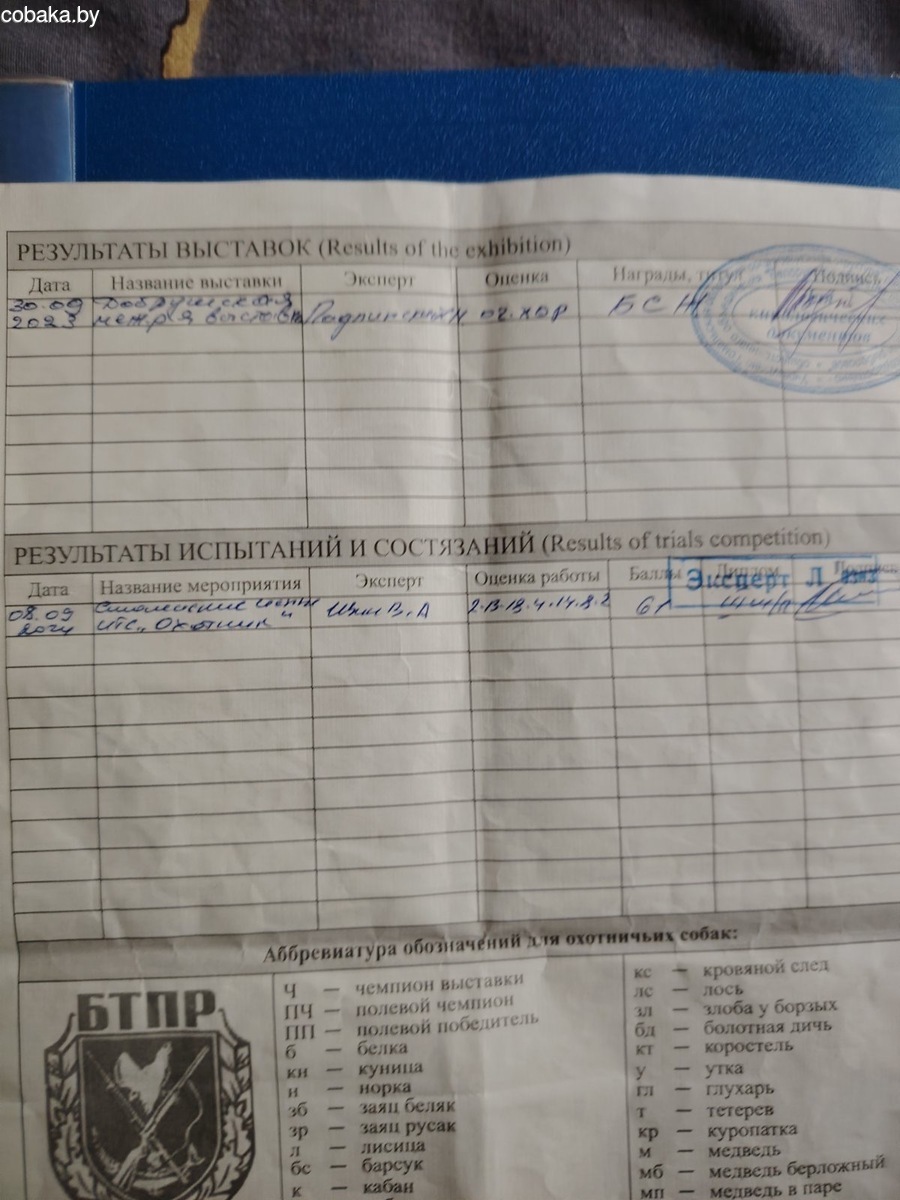 cobaka.by
РЕЗУЛЬТАТЫ ВЫСТАВОК (Results of the exhibition)
Дата Название выставки Эксперт Оценка Награды, титул Подпись
30.09 Добрушская
2023 выставка оч.хор БСЖ
кинологических
документов
РЕЗУЛЬТАТЫ ИСПЫТАНИЙ И СОСТЯЗАНИЙ (Results of trials competition)
Дата Название мероприятия Эксперт Оценка работы Баллы Диплом Подпись
Эксперт
08.09 В.А 61
2024 ИТС "Охотник"
Аббревиатура обозначений для охотничьих собак:
БТПР
Ч — чемпион выставки
ПЧ — полевой чемпион
ПП — полевой победитель
б — белка
кн — куница
н — норка
зб — заяц беляк
зр — заяц русак
л — лисица
бс — барсук
к — кабан
кс — кровяной след
лс — лось
зл — злоба у борзых
бд — болотная дичь
кт — коростель
у — утка
гл — глухарь
т — тетерев
кр — куропатка
м — медведь
мб — медведь берложный
мп — медведь в паре